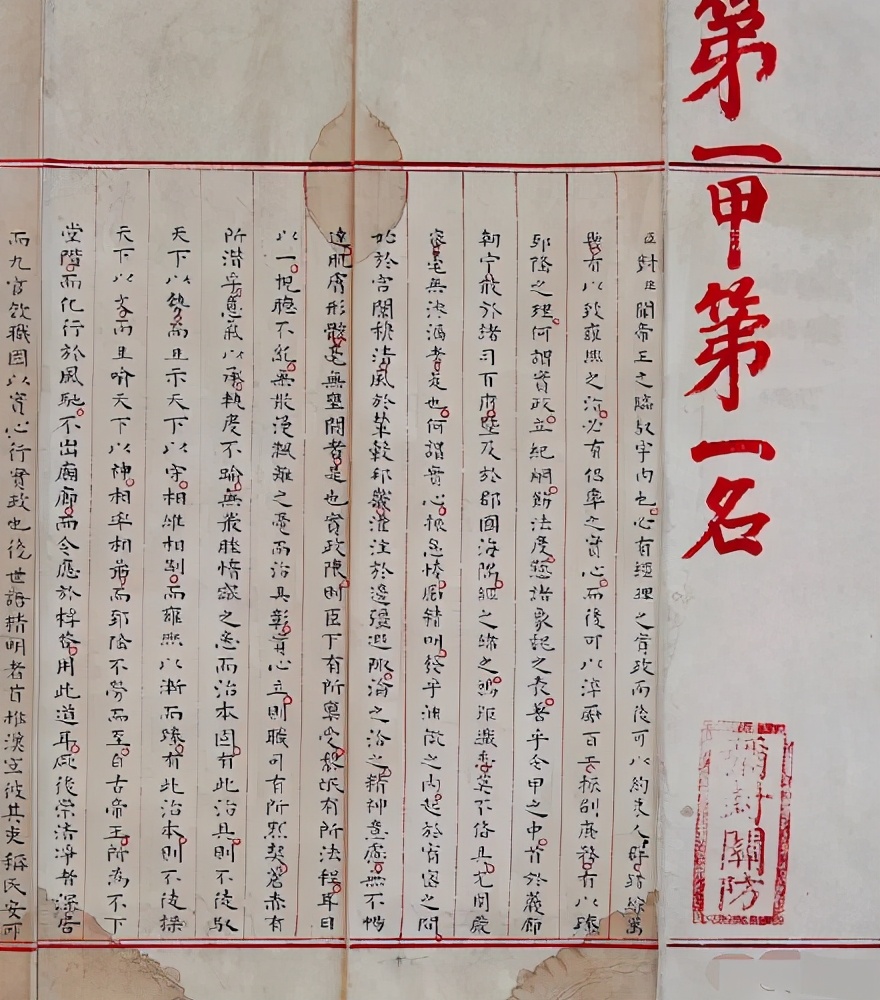 第一甲第一名
彌封關防
臣對臣聞帝王之臨馭宇內也必有經理之實政而後可以約束人群錯綜萬
機有以致雍熙之治必有倡率之實心而後可以淬厲百工振刷庶務有以臻
郅隆之理何謂實政立紀綱飭法度懸諸象魏之表著乎令甲之中首於巖廊
朝宁散於諸司百府暨及於郡國海隅經之緯之鴻鉅纖悉莫不備具充周嚴
密毫無滲漏者是也何謂實心振怠惕勵精明發乎淵微之內起於宥密之間
始於宮闈穆清風於輦轂邦畿灌注於邊疆遐陬淪之洽之精神意慮無不暢
達肌膚形骸毫無壅閼者是也實政陳則臣下有所稟受黎氓有所法程耳目
以一視聽不紊無散漫飄離之憂而治具彰實心立則職司有所默契蒼赤有
所潛孚意氣以承軌度不踰無叢脞惰窳之患而治本固有此治具則不徒馭
天下以勢而且示天下以守相維相制而雍熙以漸而臻有此治本則不徒操
天下以文而且喻天下以神相率相勖而郅隆不勞而至自古帝王所為不下
堂階而化行於風馳不出廟廊而令應於桴答用此道耳厥後崇清淨者深居
而九官效職固以實心行實政也後世語精明者首推漢宣彼其吏稱民安可